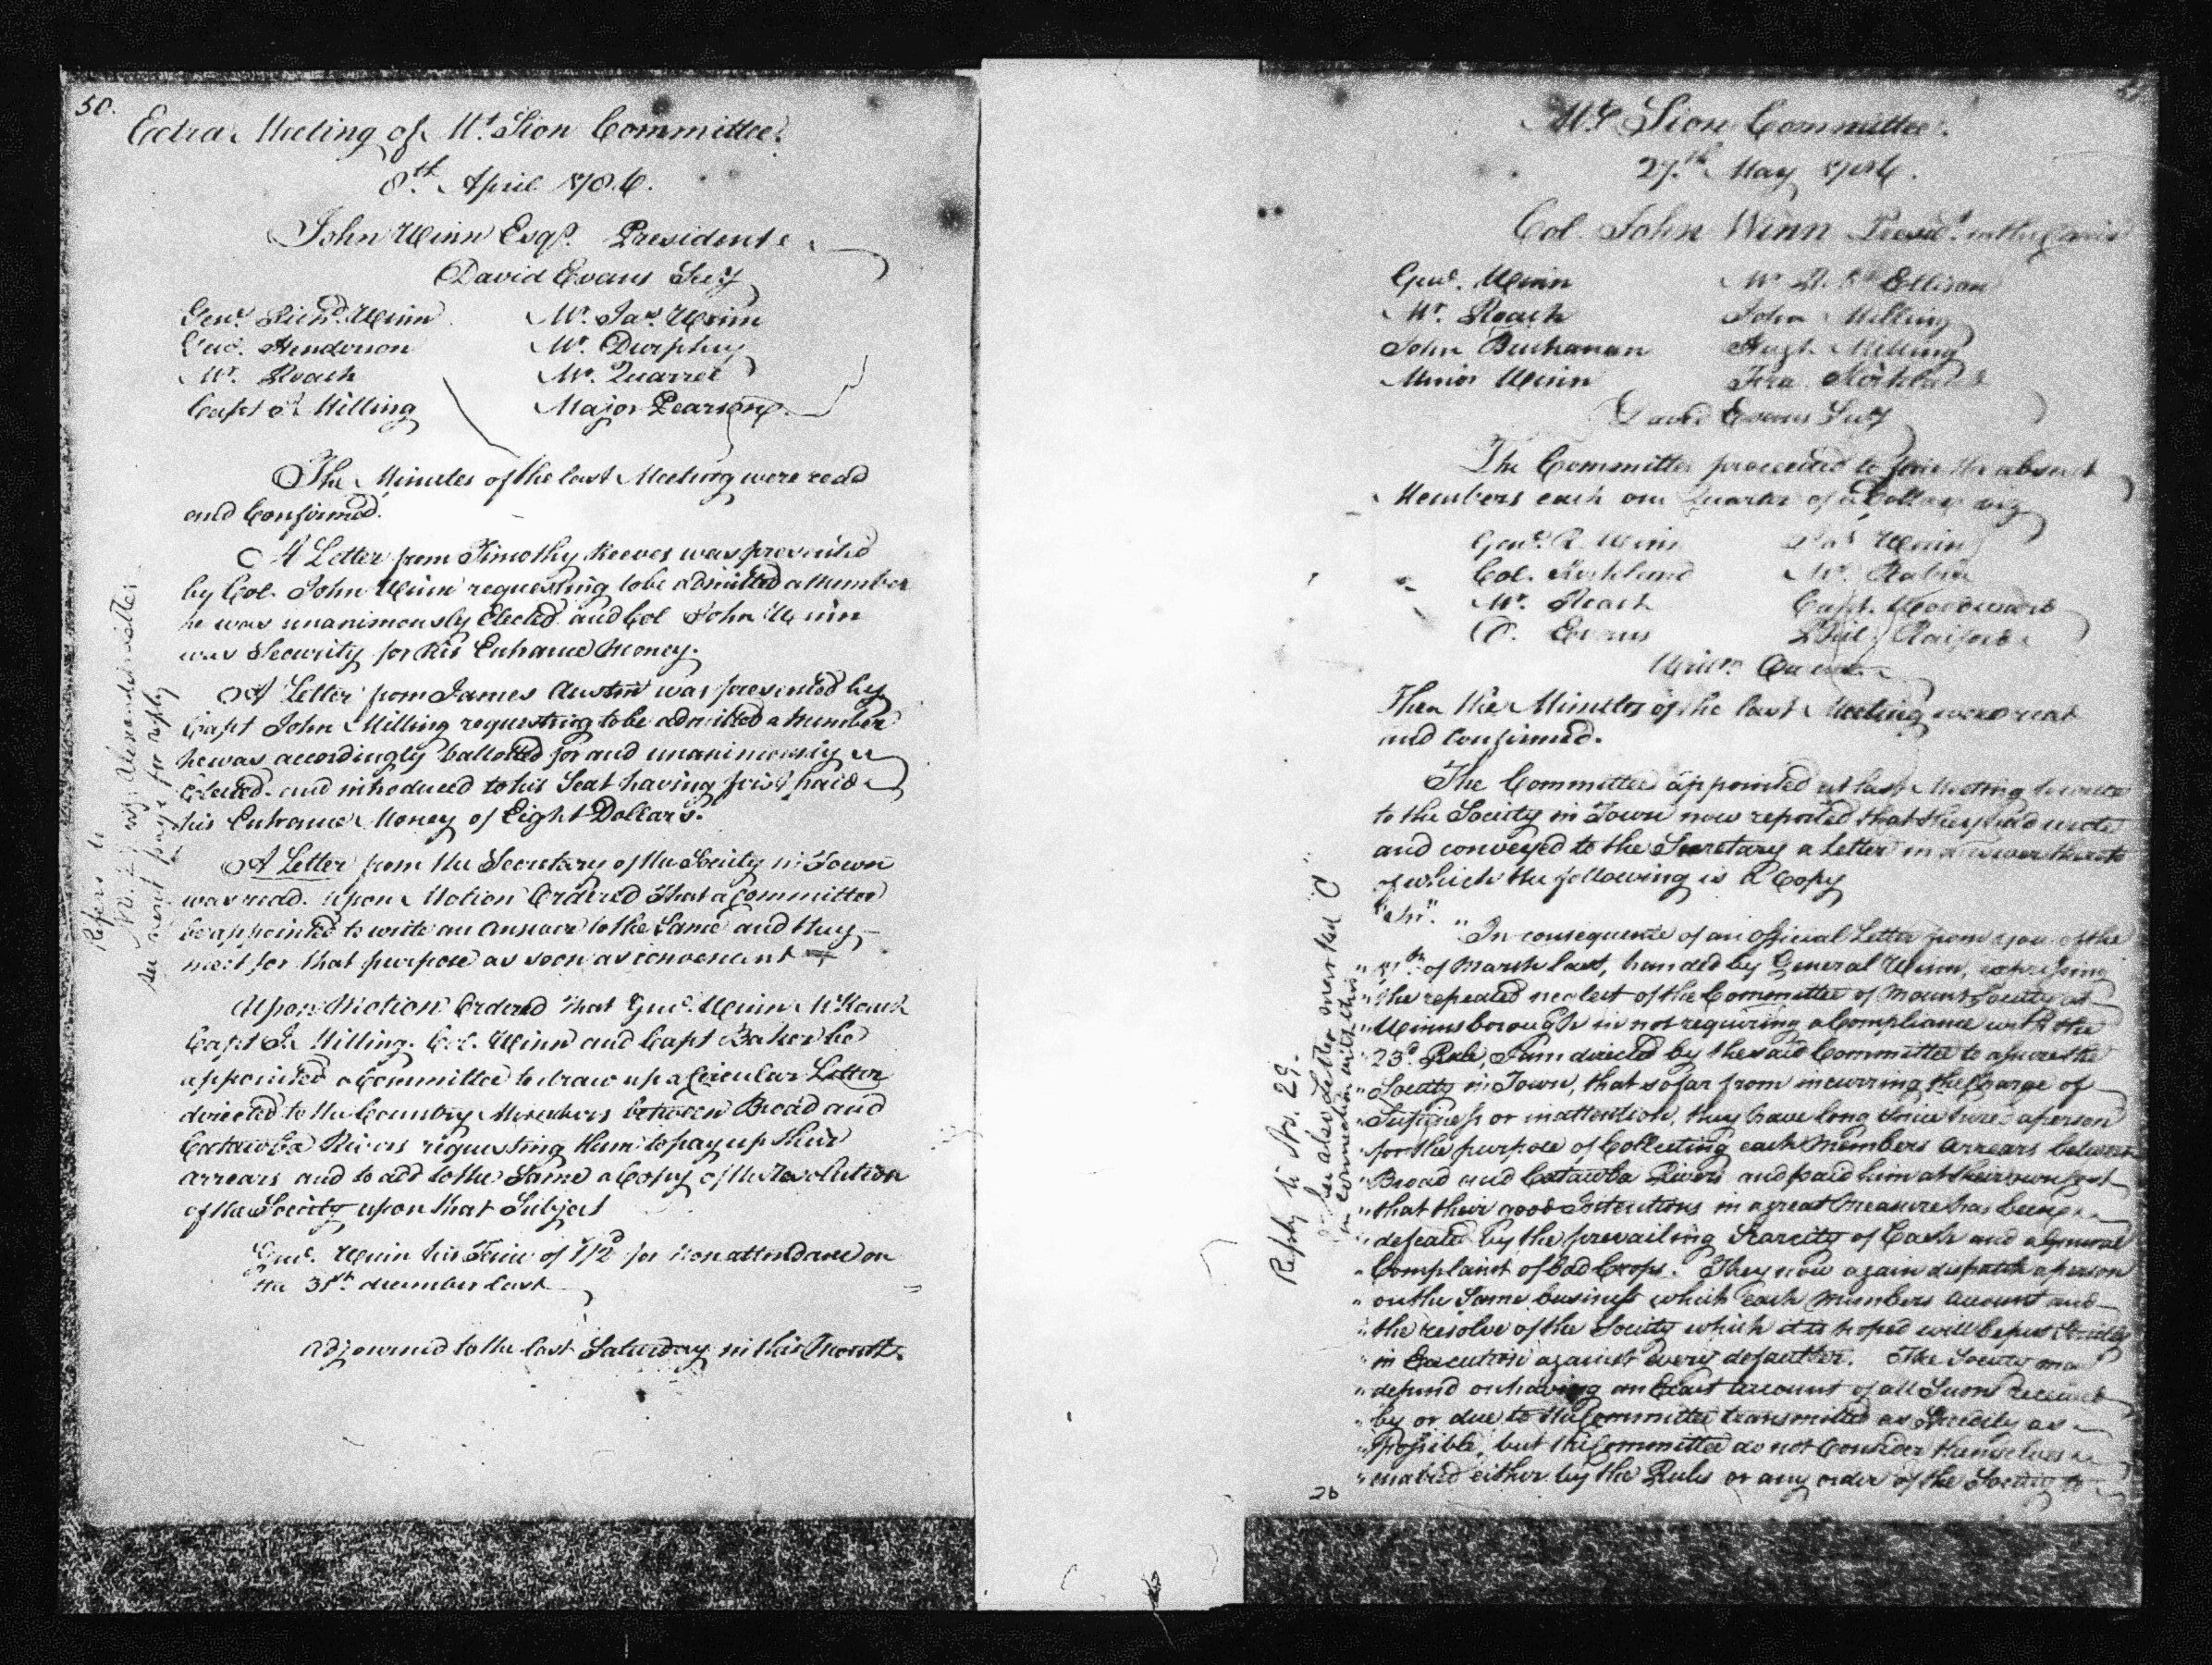 50.
Extra Meeting of Mt. Sion Committee.
8th. April 1786.
John Winn Esqr. President
David Evans Secy
Genl. Richd. Winn Mr. Jas. Winn
Genl. Henderson Mr. Durphey
Mr. Roach Mr. Quarrel
Capt Jn Milling Major Pearson
The Minutes of the last Meeting were read
and Confirmed.
A Letter from Timothy Reeves was presented
by Col. John Winn requesting to be admitted a Member
he was unanimously Elected and Col John Winn
was Security for his Entrance Money.
A Letter from James Austin was presented by
Capt John Milling requesting to be admitted a Member
he was accordingly ballotted for and unanimously
Elected and introduced to his Seat having first paid
his Entrance Money of Eight Dollars.
A Letter from the Secretary of the Society in Town
was read. upon Motion Ordered that a Committee
be appointed to write an answer to the Same and they
meet for that purpose as soon as convenient
Upon Motion Ordered that Genl. Winn Mr Roach
Capt Jn Milling. Col. Winn and Capt Baker be
appointed a Committee to draw up a Circular Letter
directed to the Country Members between Broad and
Catawba Rivers requesting them to pay up their
arrears and to add to the Same a Copy of the Resolution
of the Society upon that Subject
Genl. Winn his Fine of 1/2d for non attendance on
the 31st. december last
adjourned to the last Saturday in this Month.
Refers to
see next page for reply
Mt Sion Committee.
27th May 1786.
Col. John Winn Presidt. in the Chair
Genl. Winn Mr. Ellison
Mr. Roach John Milling
John Buchanan Hugh Milling
Minor Winn Fra. Kirkland
David Evans Secy
The Committee proceeded to fine the absent
Members each one Quarter of a Dollar viz
Genl. R. Winn Jas Winn
Col. Kirkland Mr.
Mr. Roach Capt. Woodward
D. Evans Phil. Raiford
Then the Minutes of the last Meeting were read
and Confirmed.
The Committee appointed at last Meeting to write
to the Society in Town now reported that they had wrote
and conveyed to the Secretary a Letter in answer thereto
of which the following is a Copy
"Sir"
"In consequence of an Official Letter from you of the
" of March last, handed by General Winn, expressing
"the repeated neglect of the Committee of Mount Society at
"Winnsborough in not requiring a Compliance with the
"23d. Rule, I am directed by the said Committee to assure the
"Society in Town, that so far from incurring the Charge of
"Supiness or inattention, they have long since hired a person
"for the purpose of Collecting each Members arrears between
"Broad and Catawba Rivers and paid him at their own Cost
"that their good Intentions in a great Measure has been
"defeated by the prevailing Scarcity of Cash and a General
"Complaint of bad Crops. They now again dispatch a person
"on the Same business which each Members account and
"the resolve of the Society which it is hoped will be put Strictly
"in Execution against every defaulter. The Society may
"depend on having an Exact account of all Sums received
"by or due to the Committee transmitted as Speedily as
"Possible, but the Committee do not Consider themselves
"enabled either by the Rules or any order of the Society to
Reply to No. 29.
see also letter marked "C"
in connection with this
26